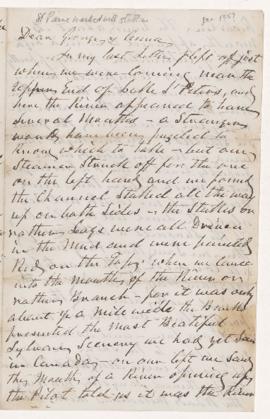 Dear George & Anna
In my last letter I left off just
when we were coming near the
upper End of Lake St Peters, and
here the River appeared to have
several Mouths - a Stranger
would have been puzzled to
know which to take - but our
Steamer Struck off for the one
on the left hand and we found
the Channel Staked all the way
up on both Sides - the Stakes or
rather Logs were all Driven
in the Mud and were painted
Red on the Tops when we came
into the Mouth of the River or
rather Branch - for it was only
about ½ a Mile wide the Banks
presented the Most Beatifed
Sylvan Scenery we had yet Seen
in Canada - on our left we Saw
the Mouth of a River opening up
the Pilot told us it was the River